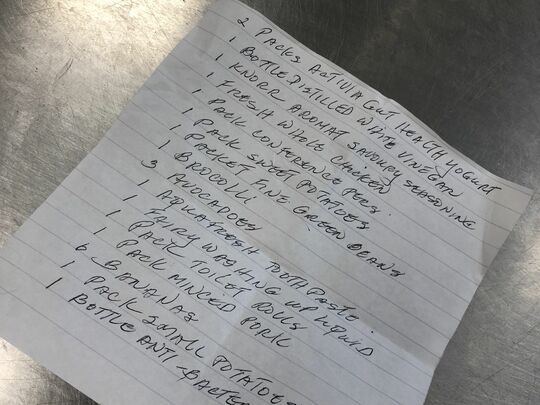 2 PACKS ACTIVIA GUT HEALTH YOGURT
1 BOTTLE DISTILLED WHITE VINEGAR
1 KNORR AROMAT SAVOURY SEASONING
1 FRESH WHOLE CHICKEN
1 PACK CONFERENCE PERS.
1 PACK SWEET POTATOES
1 PACKET FINE GREEN BEANS
1 BROCOLLI
3 AVOCADOES
1 AQUAFRESH TOOTHPASTE.
1 FAIRY WASHING UP LIQUID
1 PACK TOILET ROLLS
1 PACK MINCED PORK
6 BANANAS
1 PACK SMALL POTATOES
1 BOTTLE ANTI-BACTE